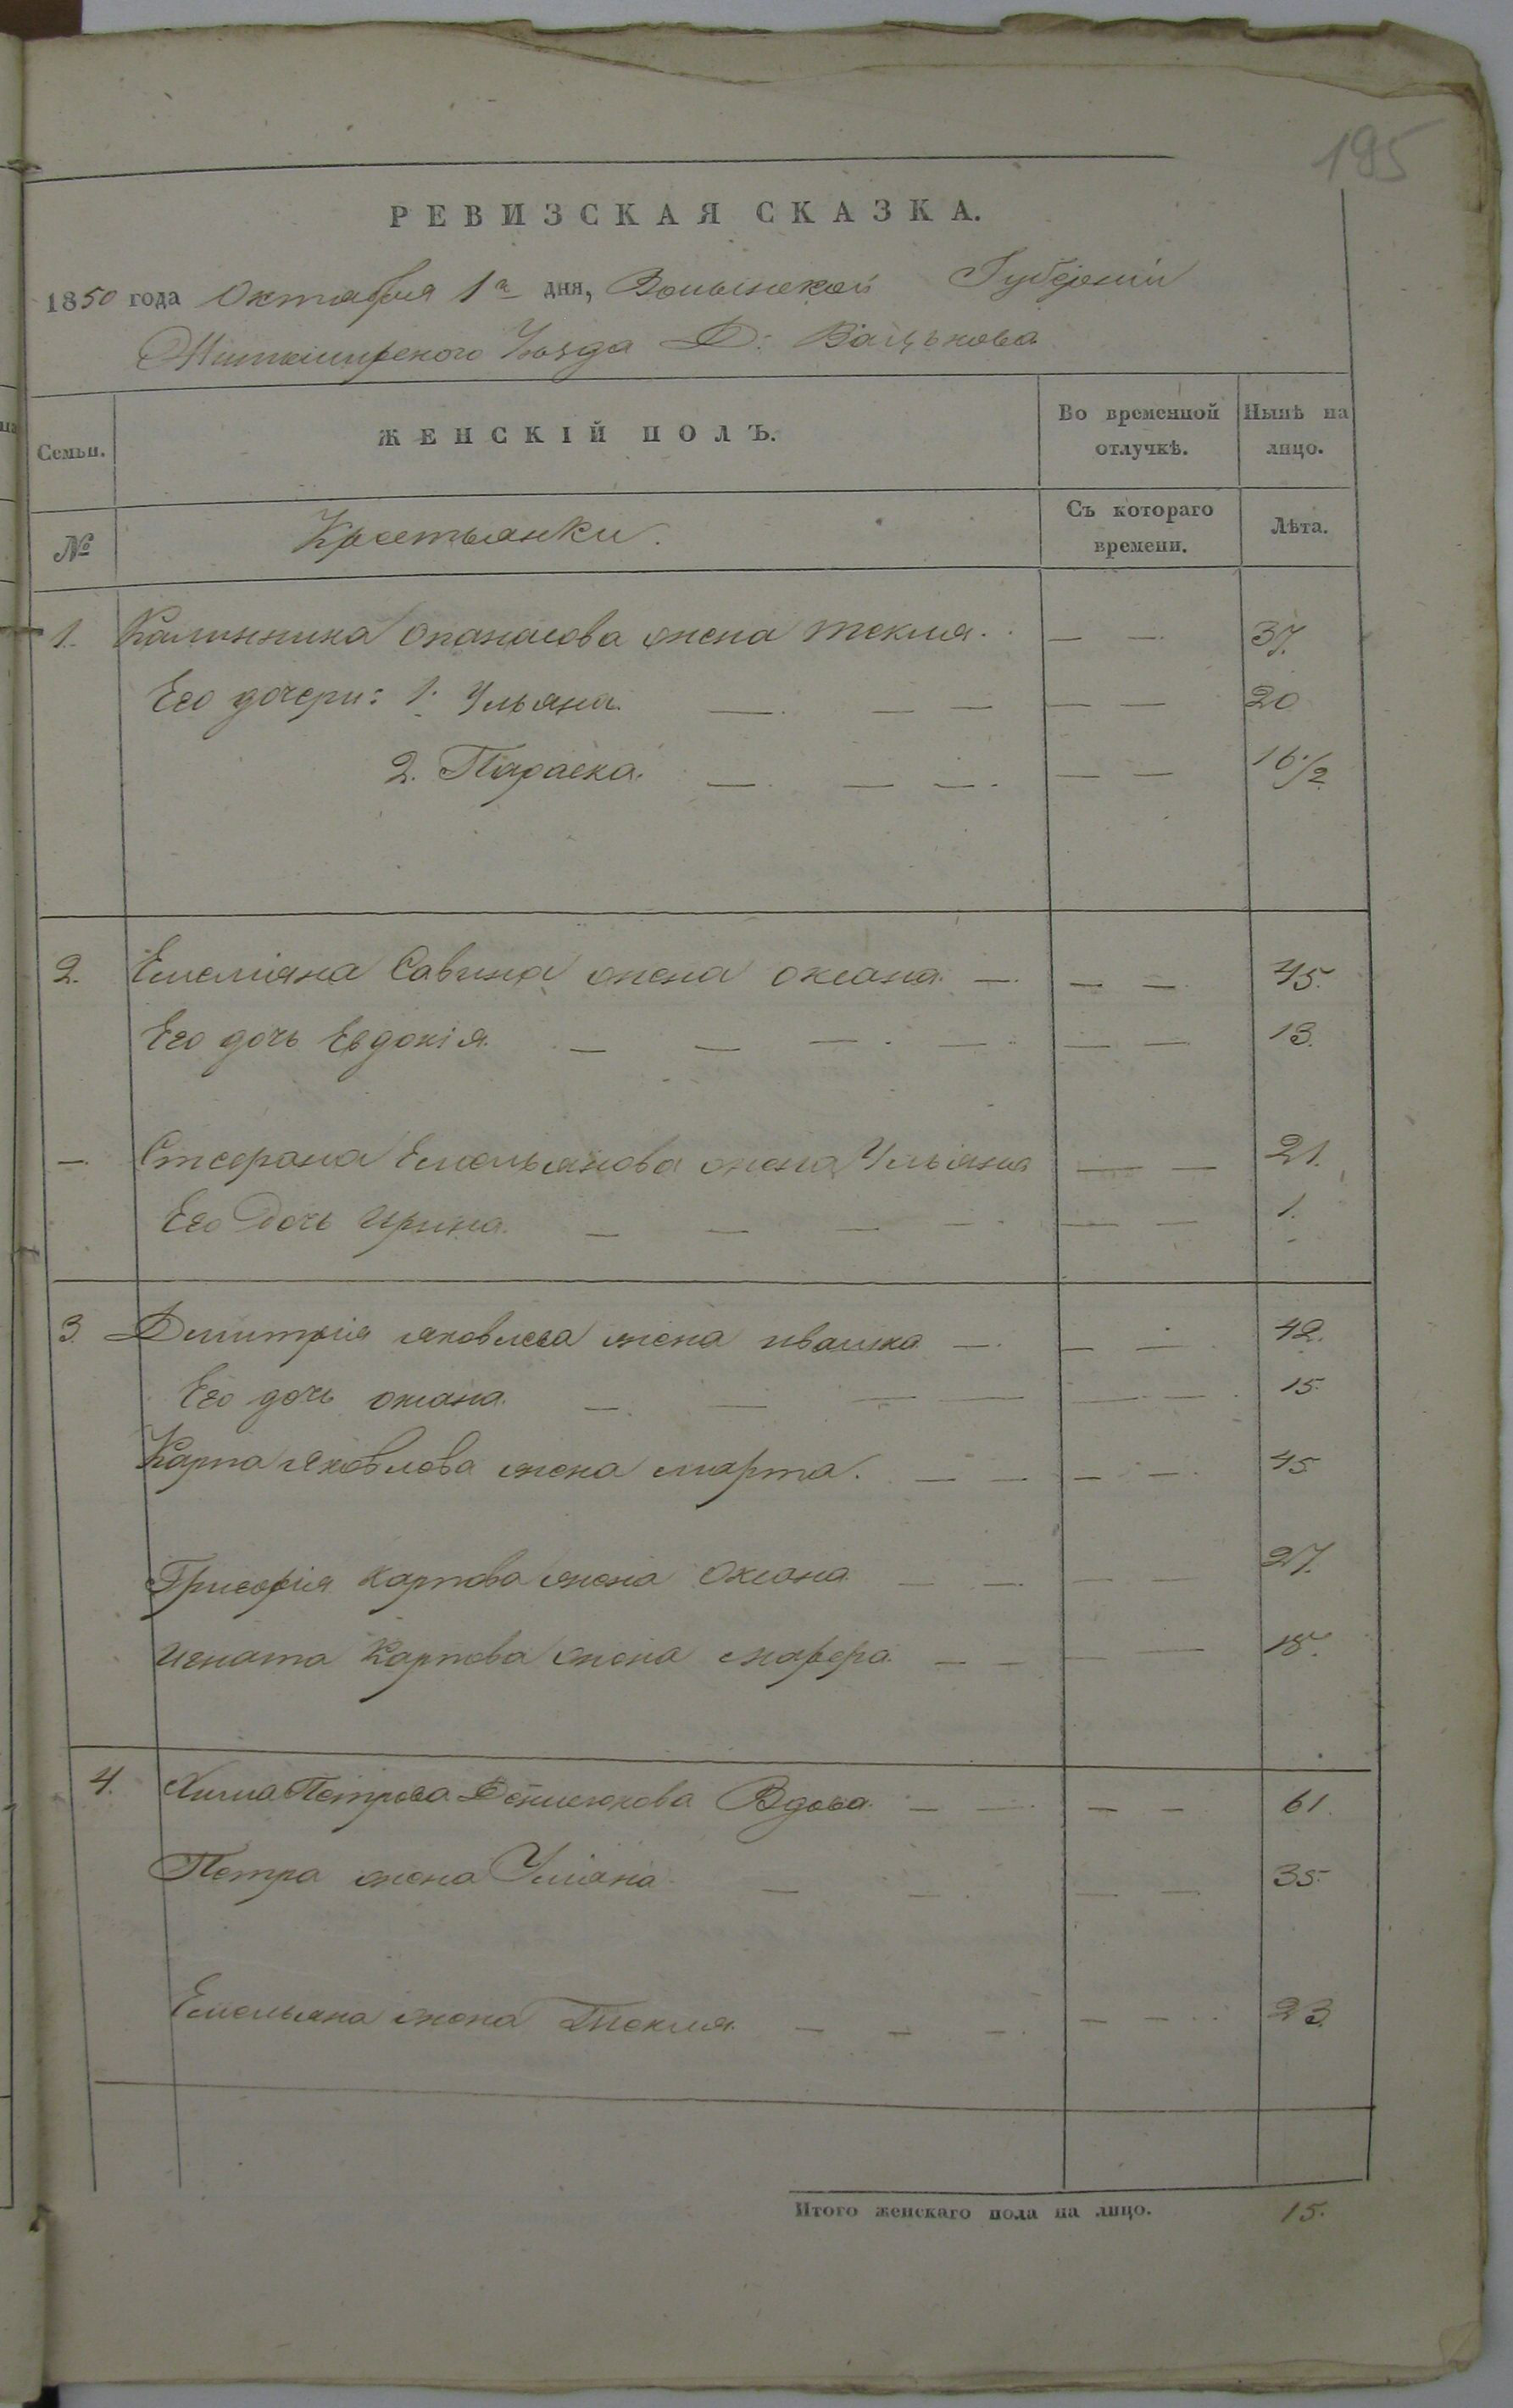 195
РЕВИЗСКАЯ СКАЗКА.
1850 года Октября 1го дня, Волынской Губерніи
Житомирского Уѣзда Д: Вацькова
Семьи. ЖЕНСКІЙ ПОЛЪ. Во временной отлучкѣ. Нынѣ на лицо.
№ Крестьянки. Съ котораго времени. Лѣта.
1. Калинника Опанасова жена Текля. — — 37.
Его дочери: 1. Ульяна. — — — — — 20
2. Параска. — — — — — 16 1/2
2. Емеліяна Савина жена Оксана. — — — 45.
Его дочь Евдокія. — — — — — — 13.
— Стефана Емельянова жена Ульяна — — 21.
Его Дочь Ирина. — — — — — — 1.
3. Дмитрія Яковлева жена — — — 42.
Его дочь Оксана. — — — — — — 15.
Карпа Яковлова жена Марта. — — — — 45
Григорія Карпова жена Оксана — — — — 27.
Игната Карпова жена — — — — 18.
4. Хима Петрова Вдова. — — — — 61.
Петра жена Уліана — — — — 35.
Емельяна жена Текля. — — — — — 23.
Итого женскаго пола на лицо. 15.